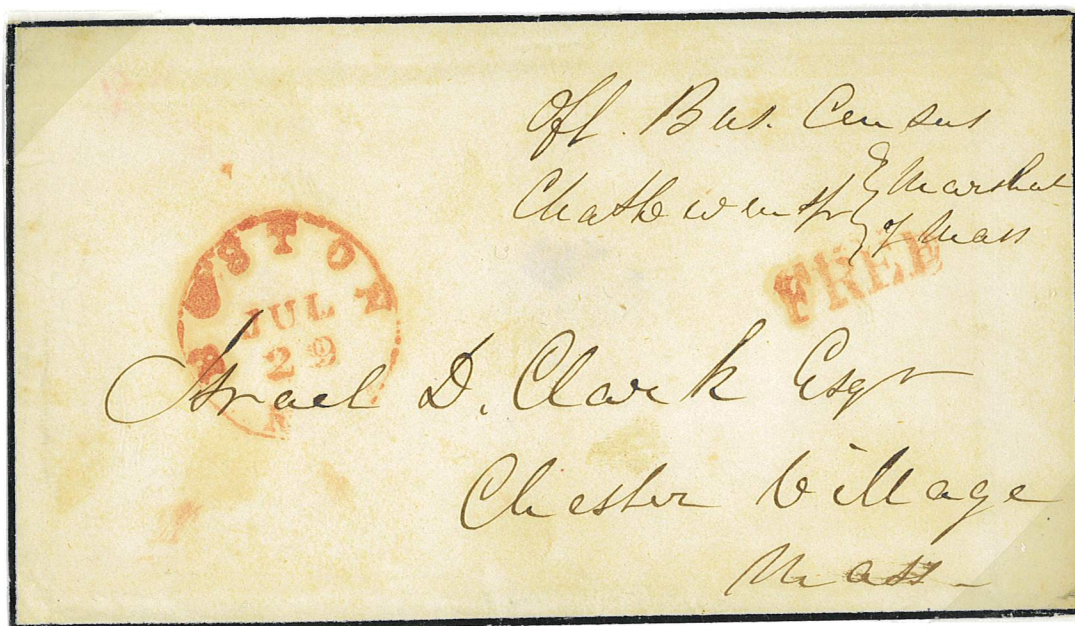 Off. Bus. Census
Chas Devens Jr Marshal
of Mass
FREE
BOSTON
JUL
29
Israel D. Clark Esqr
Chester Village
Mass